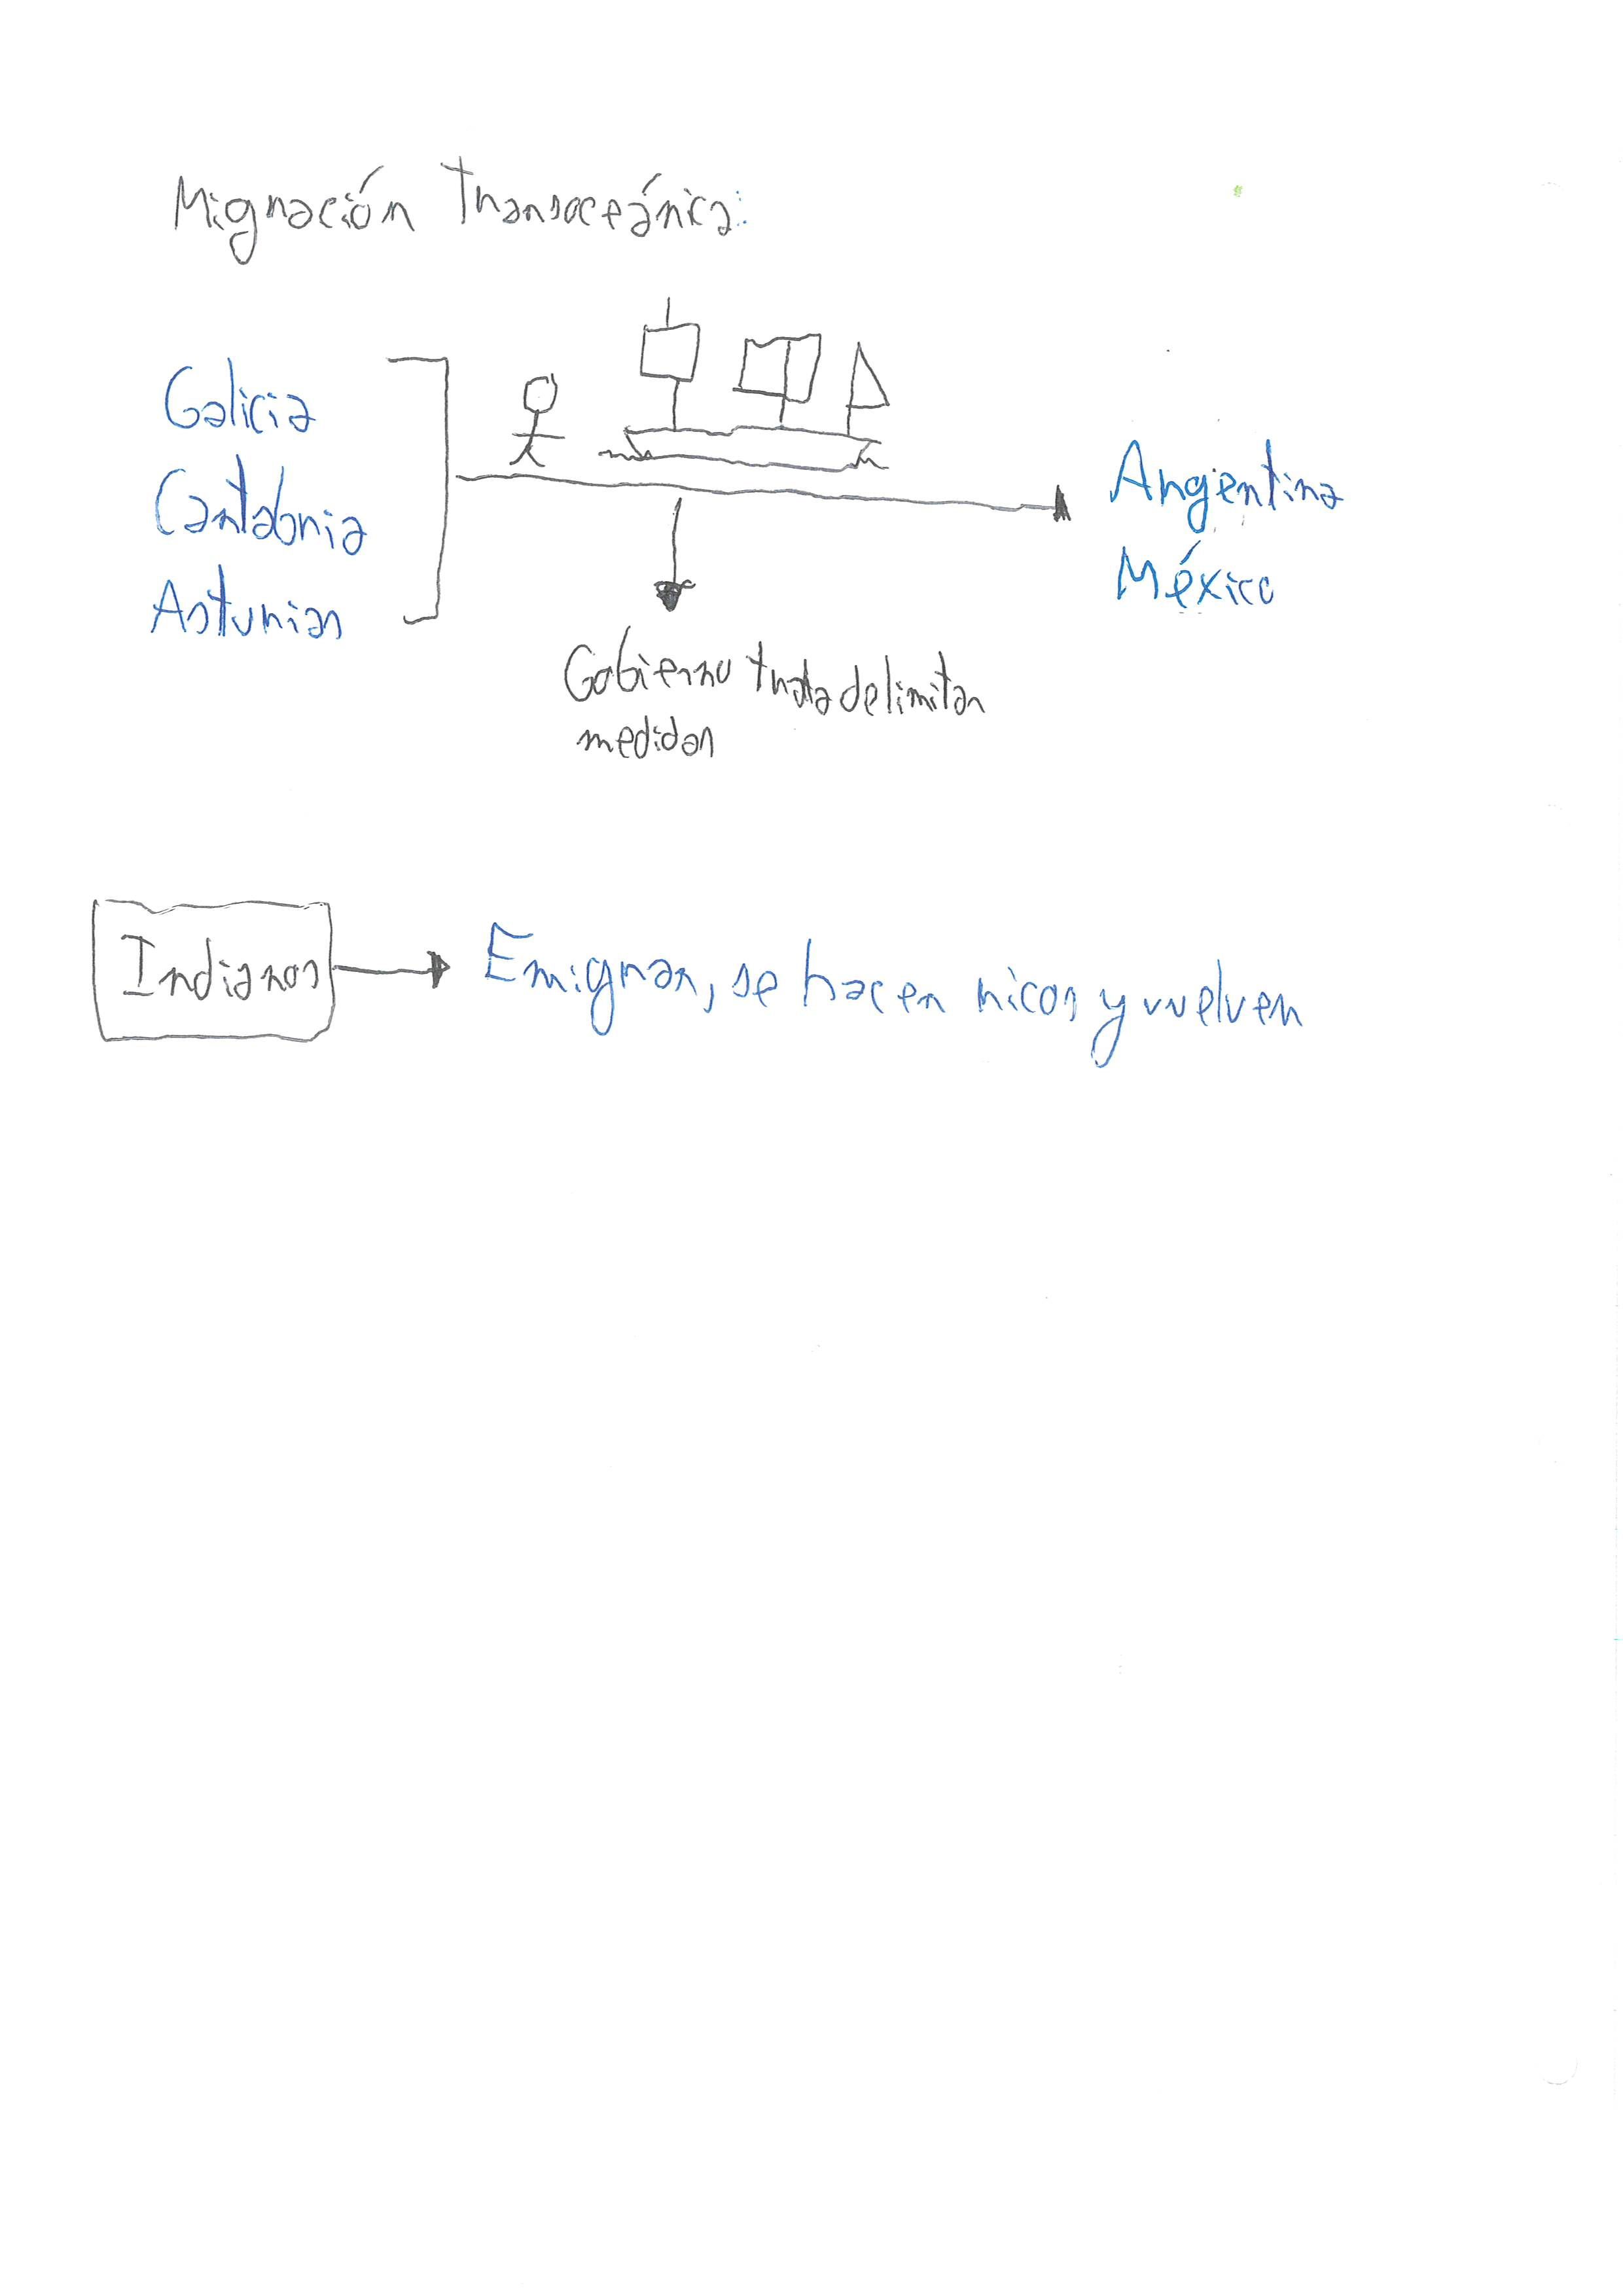 Migración Transoceánica:
Galicia
Cantabria
Asturias
Argentina
México
Gobierno trata de limitar
medidas
Indianos
Emigran, se hacen ricos y vuelven